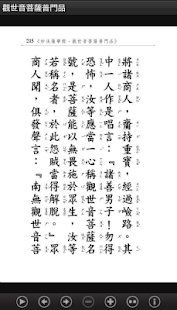 觀世音菩薩普門品
《妙法蓮華經‧觀世音菩薩普門品》
將諸商人，齎持重寶，經過嶮路。其
中一人作是唱言：『諸善男子！勿得
恐怖，汝等應當一心稱觀世音菩薩名
號，是菩薩能以無畏施於眾生，汝等
若稱名者，於此怨賊當得解脫。』眾
商人聞，俱發聲言：『南無觀世音菩